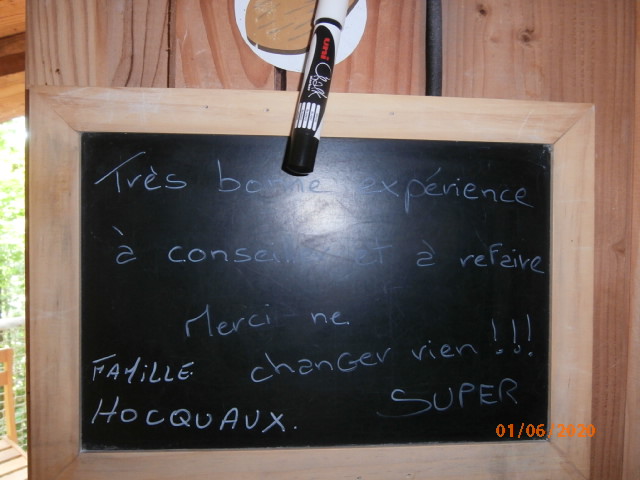 uni Chalk
Très bonne expérience
à conseiller et à refaire
Merci ne
changer rien !!!
FAMILLE
HOCQUAUX.
SUPER
01/06/2020